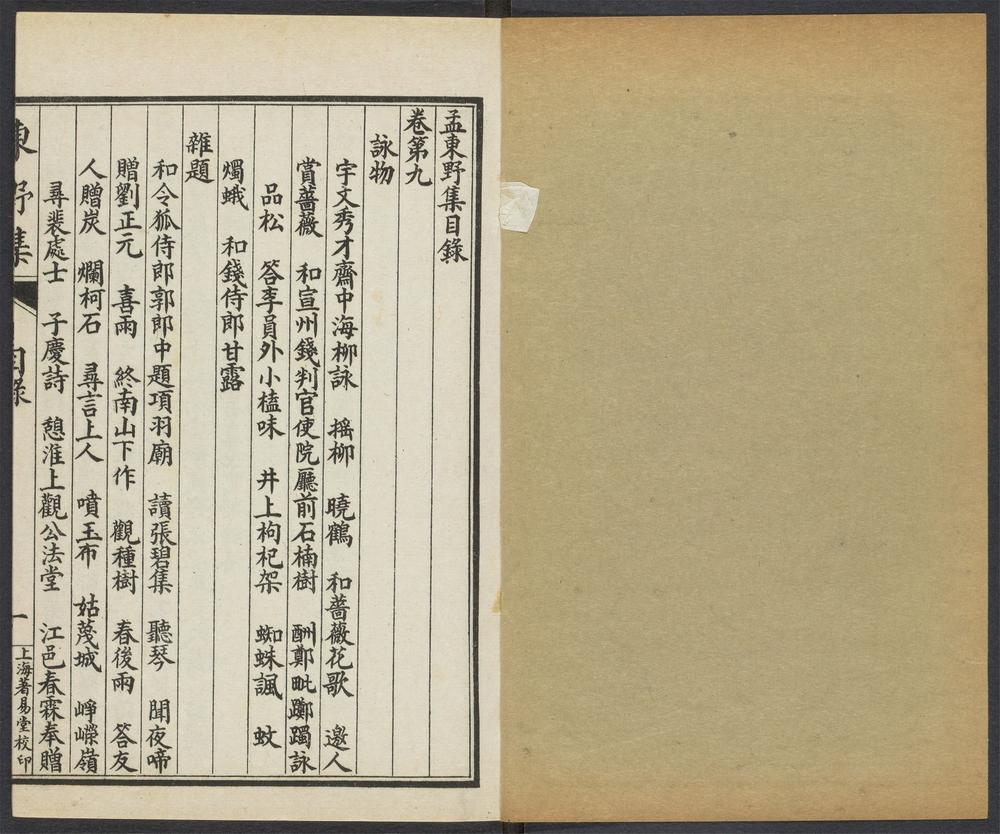 孟東野集目錄
卷第九
詠物
宇文秀才齋中海柳詠　搖柳　曉鶴　和薔薇花歌　邀人
賞薔薇　和宣州錢判官使院廳前石楠樹　酬鄭毗躑躅詠
品松　答李員外小榼味　井上枸杞架　蜘蛛諷　蚊
燭蛾　和錢侍郎甘露
雜題
和令狐侍郎郭郎中題項羽廟　讀張碧集　聽琴　聞夜啼
贈劉正元　喜雨　終南山下作　觀種樹　春後雨　答友
人贈炭　爛柯石　尋言上人　噴玉布　姑蔑城　崢嶸嶺
尋裴處士　子慶詩　憩淮上觀公法堂　江邑春霖奉贈
東野集　目錄　一　上海著易堂校印